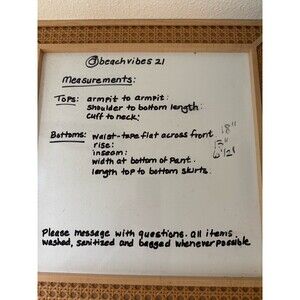 @beachvibes21
Measurements:
Tops: armpit to armpit:
shoulder to bottom length:
cuff to neck:
Bottoms: waist-tape flat across front 18"
rise: 13"
inseam:
width at bottom of pant.
length top to bottom skirts.
Please message with questions. all items
washed, sanitized and bagged whenever possible.